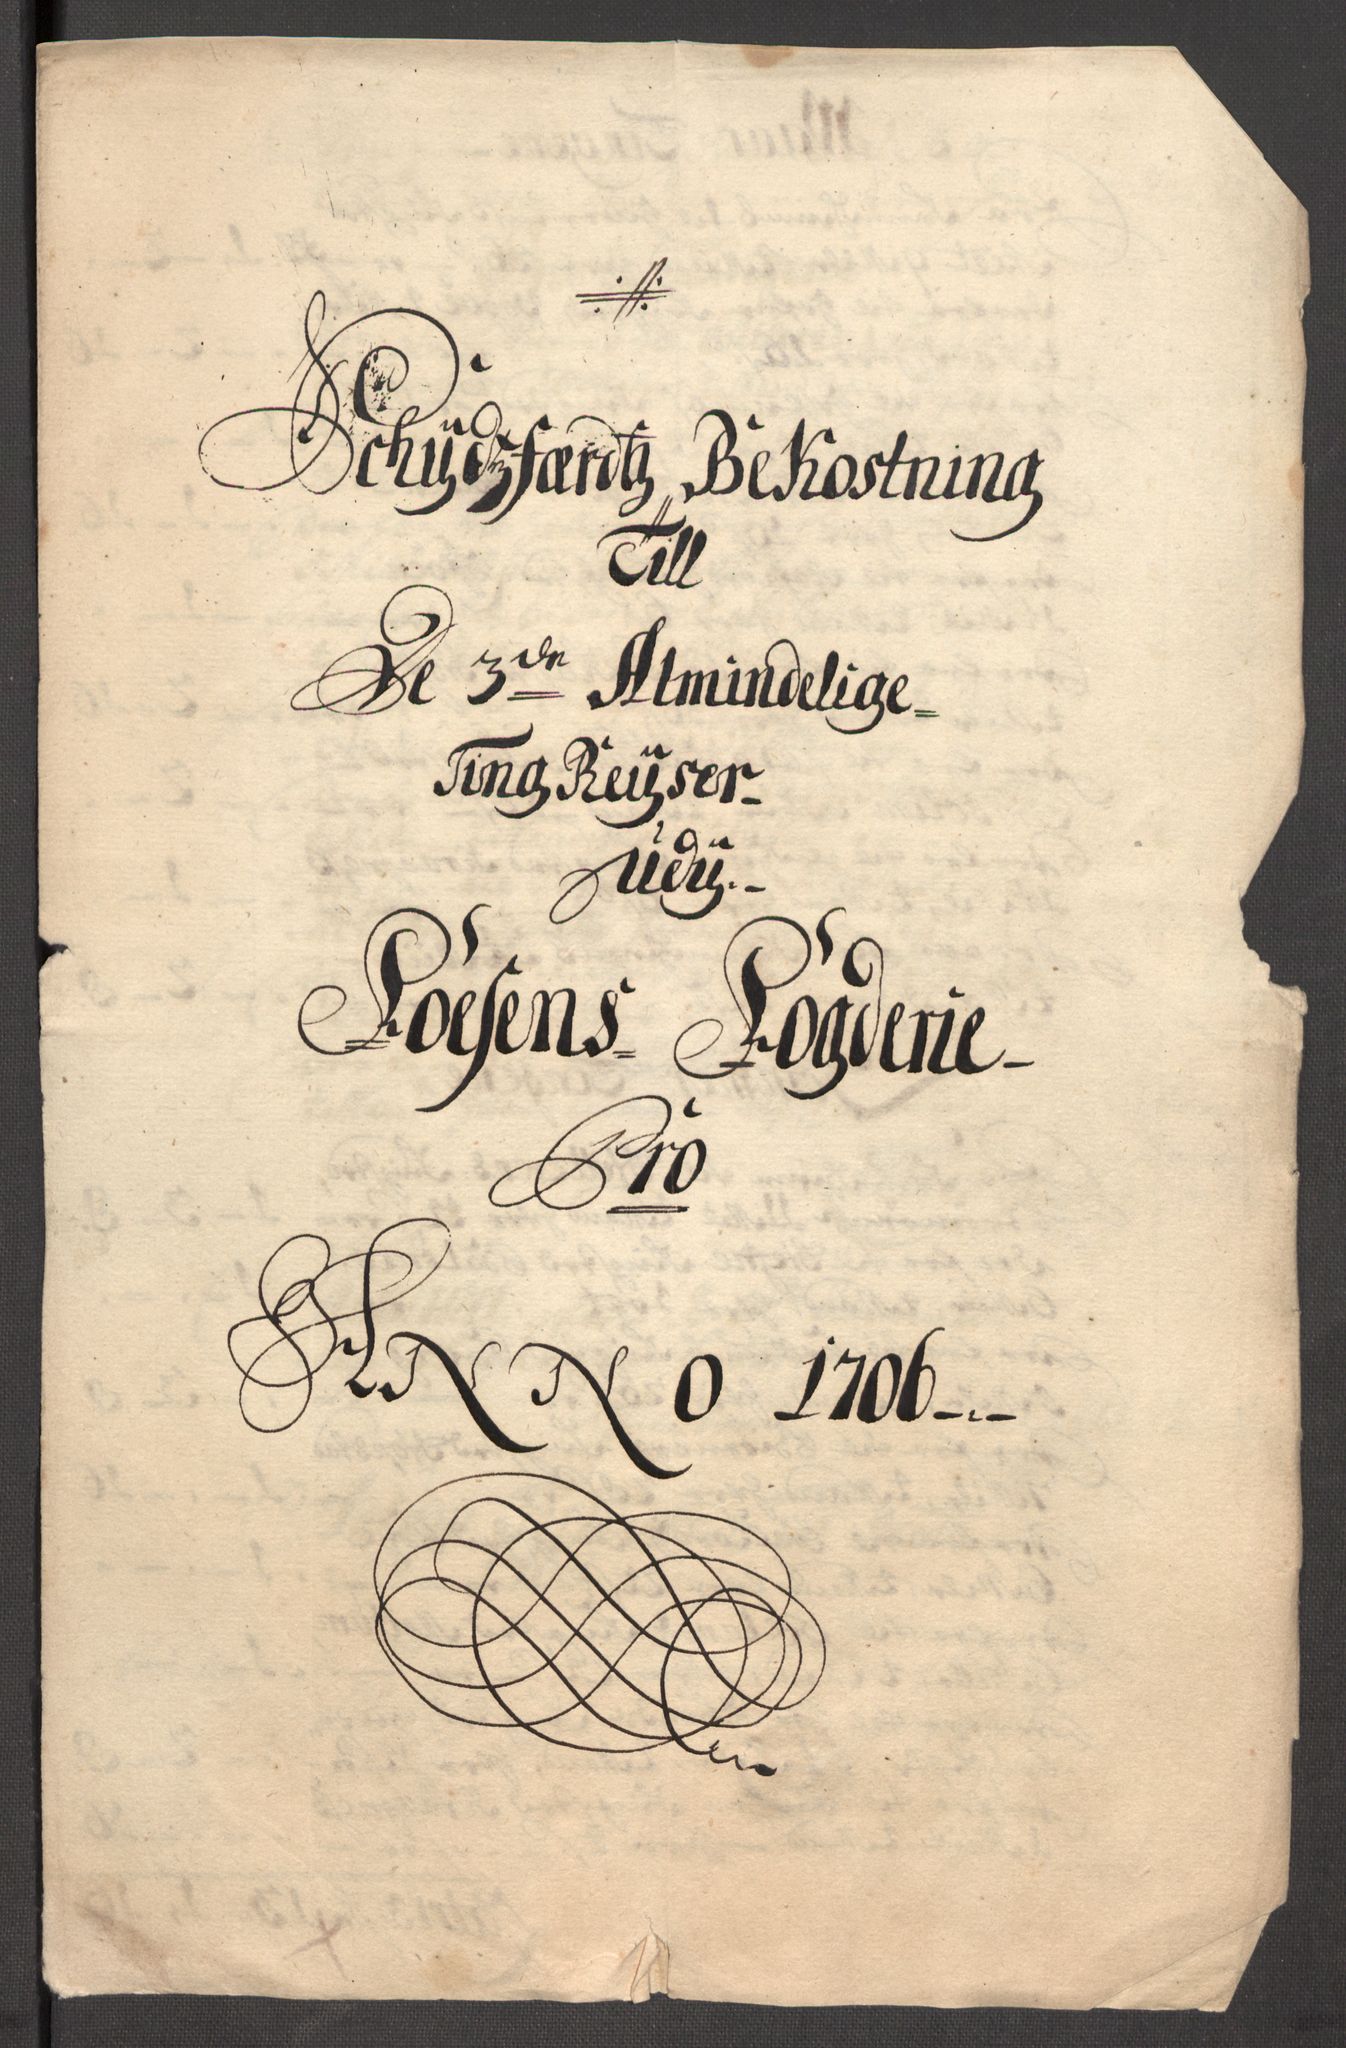 Schÿdtzfærdtz Bekostning
Till
De 3de Almindelige
Ting Reÿser
Udÿ
Foesens Fogderie
Pro
ANNO 1706